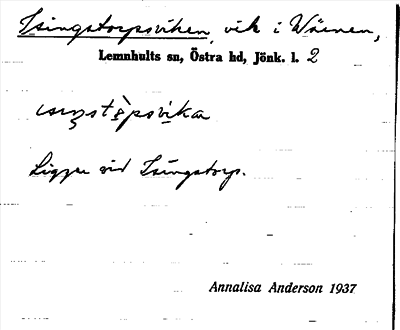 Isingstorpsviken, vik i Wären,
Lemnhults sn, Östra hd, Jönk. l. 2
Ligger vid Isingstorp.
Annalisa Anderson 1937